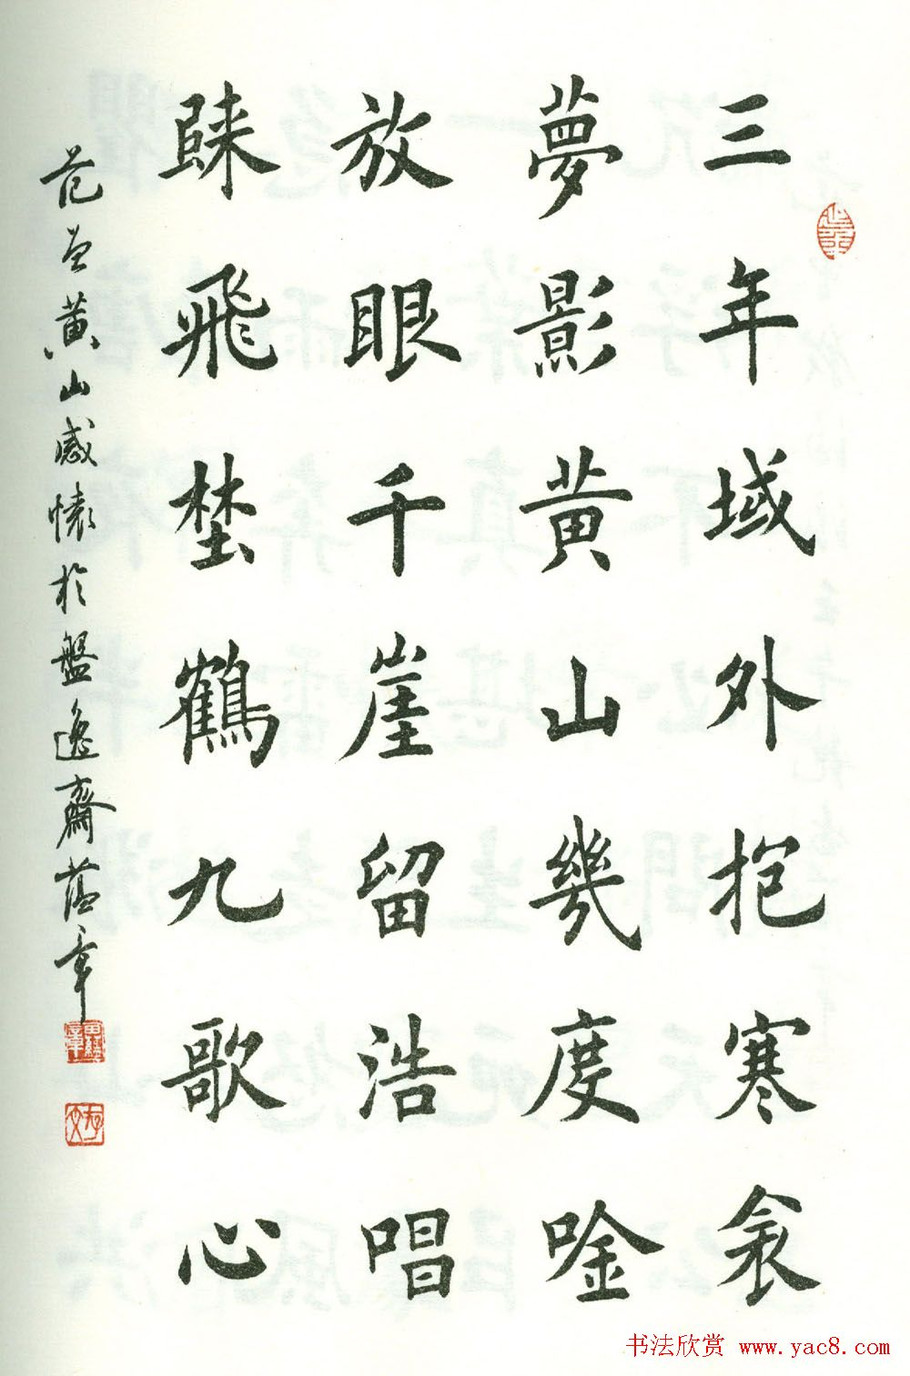 三年域外抱寒衾
夢影黄山幾度唫
放眼千崖留浩唱
歸飛埜鶴九歌心
范曾黄山感懷於盤逸齋蕰章
书法欣赏 www.yac8.com